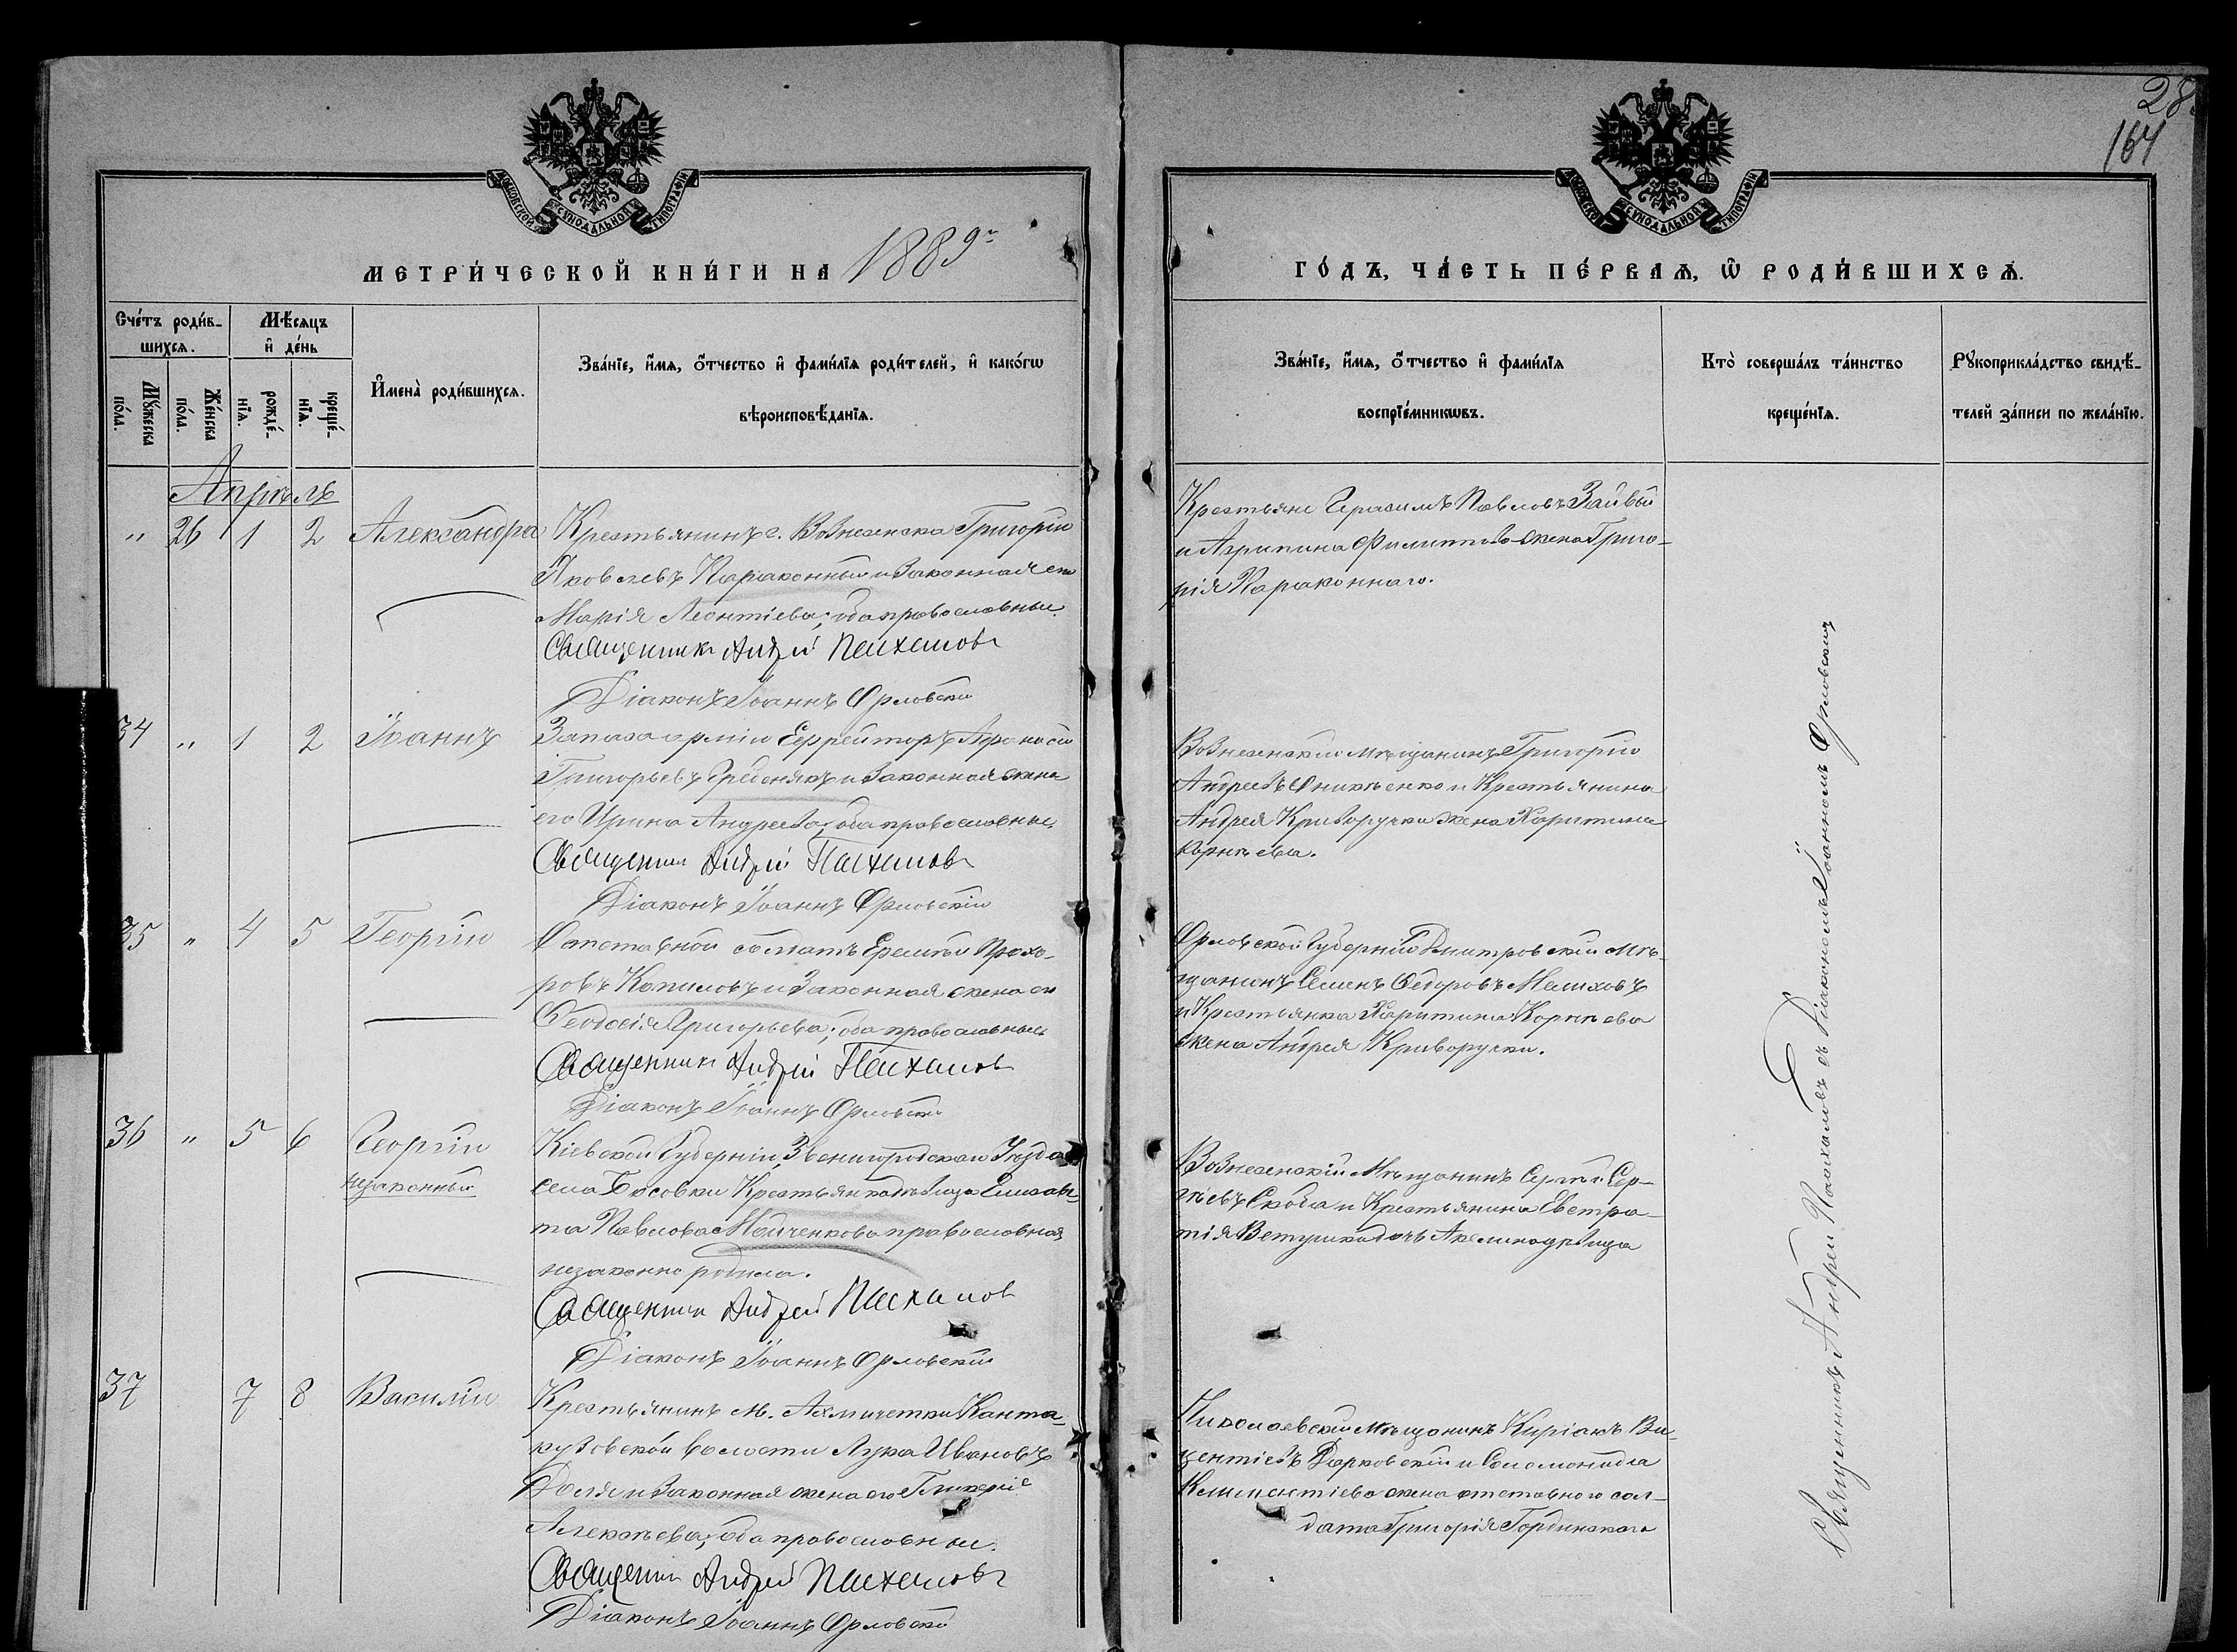 28
164
МОСКОВСКОЙ СѴНОДАЛЬНОЙ ТИПОГРАФІИ
МОСКОВСКОЙ СѴНОДАЛЬНОЙ ТИПОГРАФІИ
МЕТРИ́ЧЕСКОЙ КНИ́ГИ НА 1889 г
ГО́ДЪ, ЧА́СТЬ ПЕ́РВАѦ, Ѡ҆ РОДИ́ВШИХСѦ.
Сче́тъ роди́в-
шихсѧ.
Мѹ́жеска
по́ла.
Же́нска
по́ла.
Мѣ́сѧцъ
и҆ де́нь
рожде́-
нїѧ.
креще́-
нїѧ.
И҆мена̀ роди́вшихсѧ.
Зва́нїе, и҆́мѧ, о҆́тчество и҆ фами́лїѧ роди́телей, и҆ како́гѡ
вѣроисповѣ́данїѧ.
Зва́нїе, и҆́мѧ, о҆́тчество и҆ фами́лїѧ
воспрїе́мникѡвъ.
Кто̀ соверша́лъ та́инство
креще́нїѧ.
Рѹкоприкла́дство свидѣ́-
телей за́писи по жела́нїю.
Апрѣль
" 26 1 2 Александра
Крестьянинъ г. Вознесенска Григорій
Яковлевъ Параконный и законная его
Марія Леонтіева; оба православные.
Священникъ Андрей Пасхаловъ
Діаконъ Іоаннъ Орловскій
Крестьяне Герасимъ Павловъ Заивый
и Агрипина Филиппова жена Григо-
рія Параконнаго.
34 " 1 2 Іоаннъ
Запаса арміи Ефрейторъ Афанасій
Григорьевъ Гребенякъ и законная жена
его Ирина Андреева; оба православные
Священник Андрей Пасхаловъ
Діаконъ Іоаннъ Орловскій
Вознесенскій мѣщанинъ Григорій
Андреевъ Оникѣенко и Крестьянина
Андрея Криворучки жена Харитина
Корнѣева.
35 " 4 5 Георгій
Отставной солдатъ Еремѣй Прохо-
ровъ Копиловъ и законная жена его
Феодосія Григорьева; оба православные
Священник Андрей Пасхалов
Діаконъ Іоаннъ Орловскій
Орловской Губерніи Дмитровскій мѣ-
щанинъ Семенъ Федоровъ Мешковъ
и Крестьянка Харитина Корнѣева
жена Андрея Криворучки.
36 " 5 6 Георгій
незаконный
Кіевской Губерніи, Звенигородскаго Уѣзда
села Босовки Крестьянка дѣвица Елисаве-
та Павлова Мойченкова православная
незаконно родила.
Священник Андрей Пасхалов
Діаконъ Іоаннъ Орловскій
Вознесенскій Мѣщанинъ Сергѣй Сер-
гѣевъ Скоба и Крестьянина Евстра-
тія дочь Акелина дѣвица
37 7 8 Василій
Крестьянинъ м. АхмичеткиКанта-
кузовской волости Лука Ивановъ
Доля и законная жена его Гликерія
Алексѣева; оба православные.
Священник Андрей Пасхаловъ
Діаконъ Іоаннъ Орловскій
Николаевскій мѣщанинъ Киріакъ Ви-
центіевъ Дарковскій и Соломонида
Климентіева жена отставного сол-
дата Григорія Гординскаго
Священникъ Андрей Пасхаловъ съ Діакономъ Іоанномъ Орловскимъ